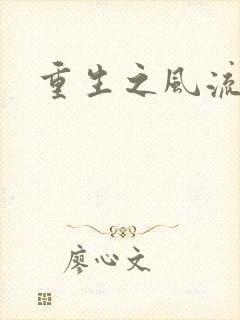 重生之风流
廖心文